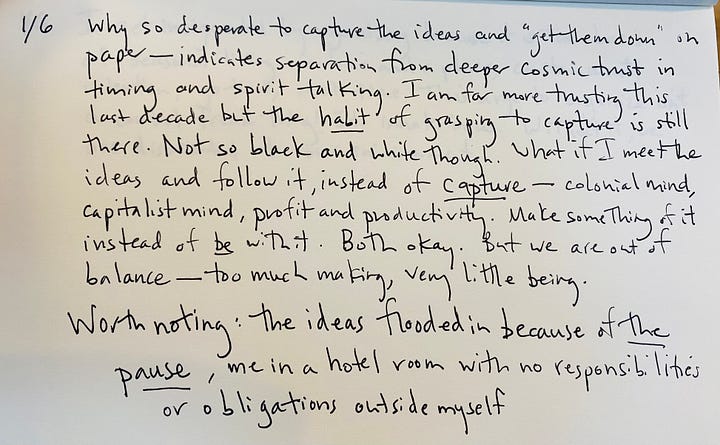 1/6 Why so desperate to capture the ideas and "get them down" on
paper — indicates separation from deeper cosmic trust in
timing and spirit talking. I am far more trusting this
last decade but the habit of grasping to capture is still
there. Not so black and white though. What if I meet the
ideas and follow it, instead of capture — colonial mind,
capitalist mind, profit and productivity. Make something of it
instead of be with it. Both okay. But we are out of
balance — too much making, very little being.
Worth noting: the ideas flooded in because of the
pause, me in a hotel room with no responsibilities
or obligations outside myself